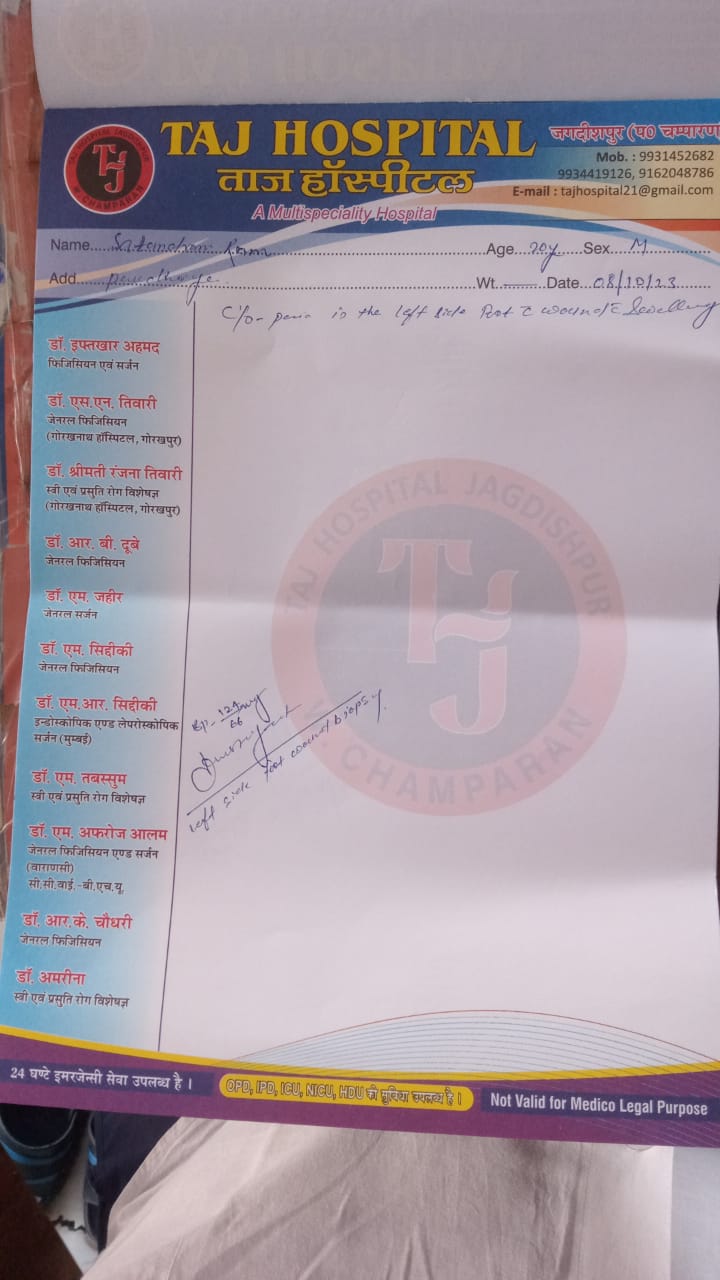 TAJ HOSPITAL JAGDISHPUR
W. CHAMPARAN
TJ
TAJ HOSPITAL
ताज हॉस्पीटल
A Multispeciality Hospital
जगदीशपुर (प० चम्पारण)
Mob. : 9931452682
9934419126, 9162048786
E-mail : tajhospital21@gmail.com
Name Age 70y Sex M
Add Wt. Date 08/10/23
C/o - in the left side Foot c wound c Swelling
डॉ. इफ्तखार अहमद
फिजिसियन एवं सर्जन
डॉ. एस.एन. तिवारी
जेनरल फिजिसियन
(गोरखनाथ हॉस्पिटल, गोरखपुर)
डॉ. श्रीमती रंजना तिवारी
स्त्री एवं प्रसुति रोग विशेषज्ञ
(गोरखनाथ हॉस्पिटल, गोरखपुर)
डॉ. आर. बी. दूबे
जेनरल फिजिसियन
डॉ. एम. जहीर
जेनरल सर्जन
डॉ. एम. सिद्दीकी
जेनरल फिजिसियन
डॉ. एम.आर. सिद्दीकी
इन्डोस्कोपिक एण्ड लेपरोस्कोपिक
सर्जन (मुम्बई)
डॉ. एम. तबस्सुम
स्त्री एवं प्रसुति रोग विशेषज्ञ
डॉ. एम. अफरोज आलम
जेनरल फिजिसियन एण्ड सर्जन
(वाराणसी)
सी.सी.वाई.-बी.एच.यू.
डॉ. आर.के. चौधरी
जेनरल फिजिसियन
डॉ. अमरीना
स्त्री एवं प्रसुति रोग विशेषज्ञ
TAJ HOSPITAL JAGDISHPUR
TJ
W. CHAMPARAN
left side Foot wound biopsy.
24 घण्टे इमरजेन्सी सेवा उपलब्ध है ।
OPD, IPD, ICU, NICU, HDU की सुविधा उपलब्ध है ।
Not Valid for Medico Legal Purpose